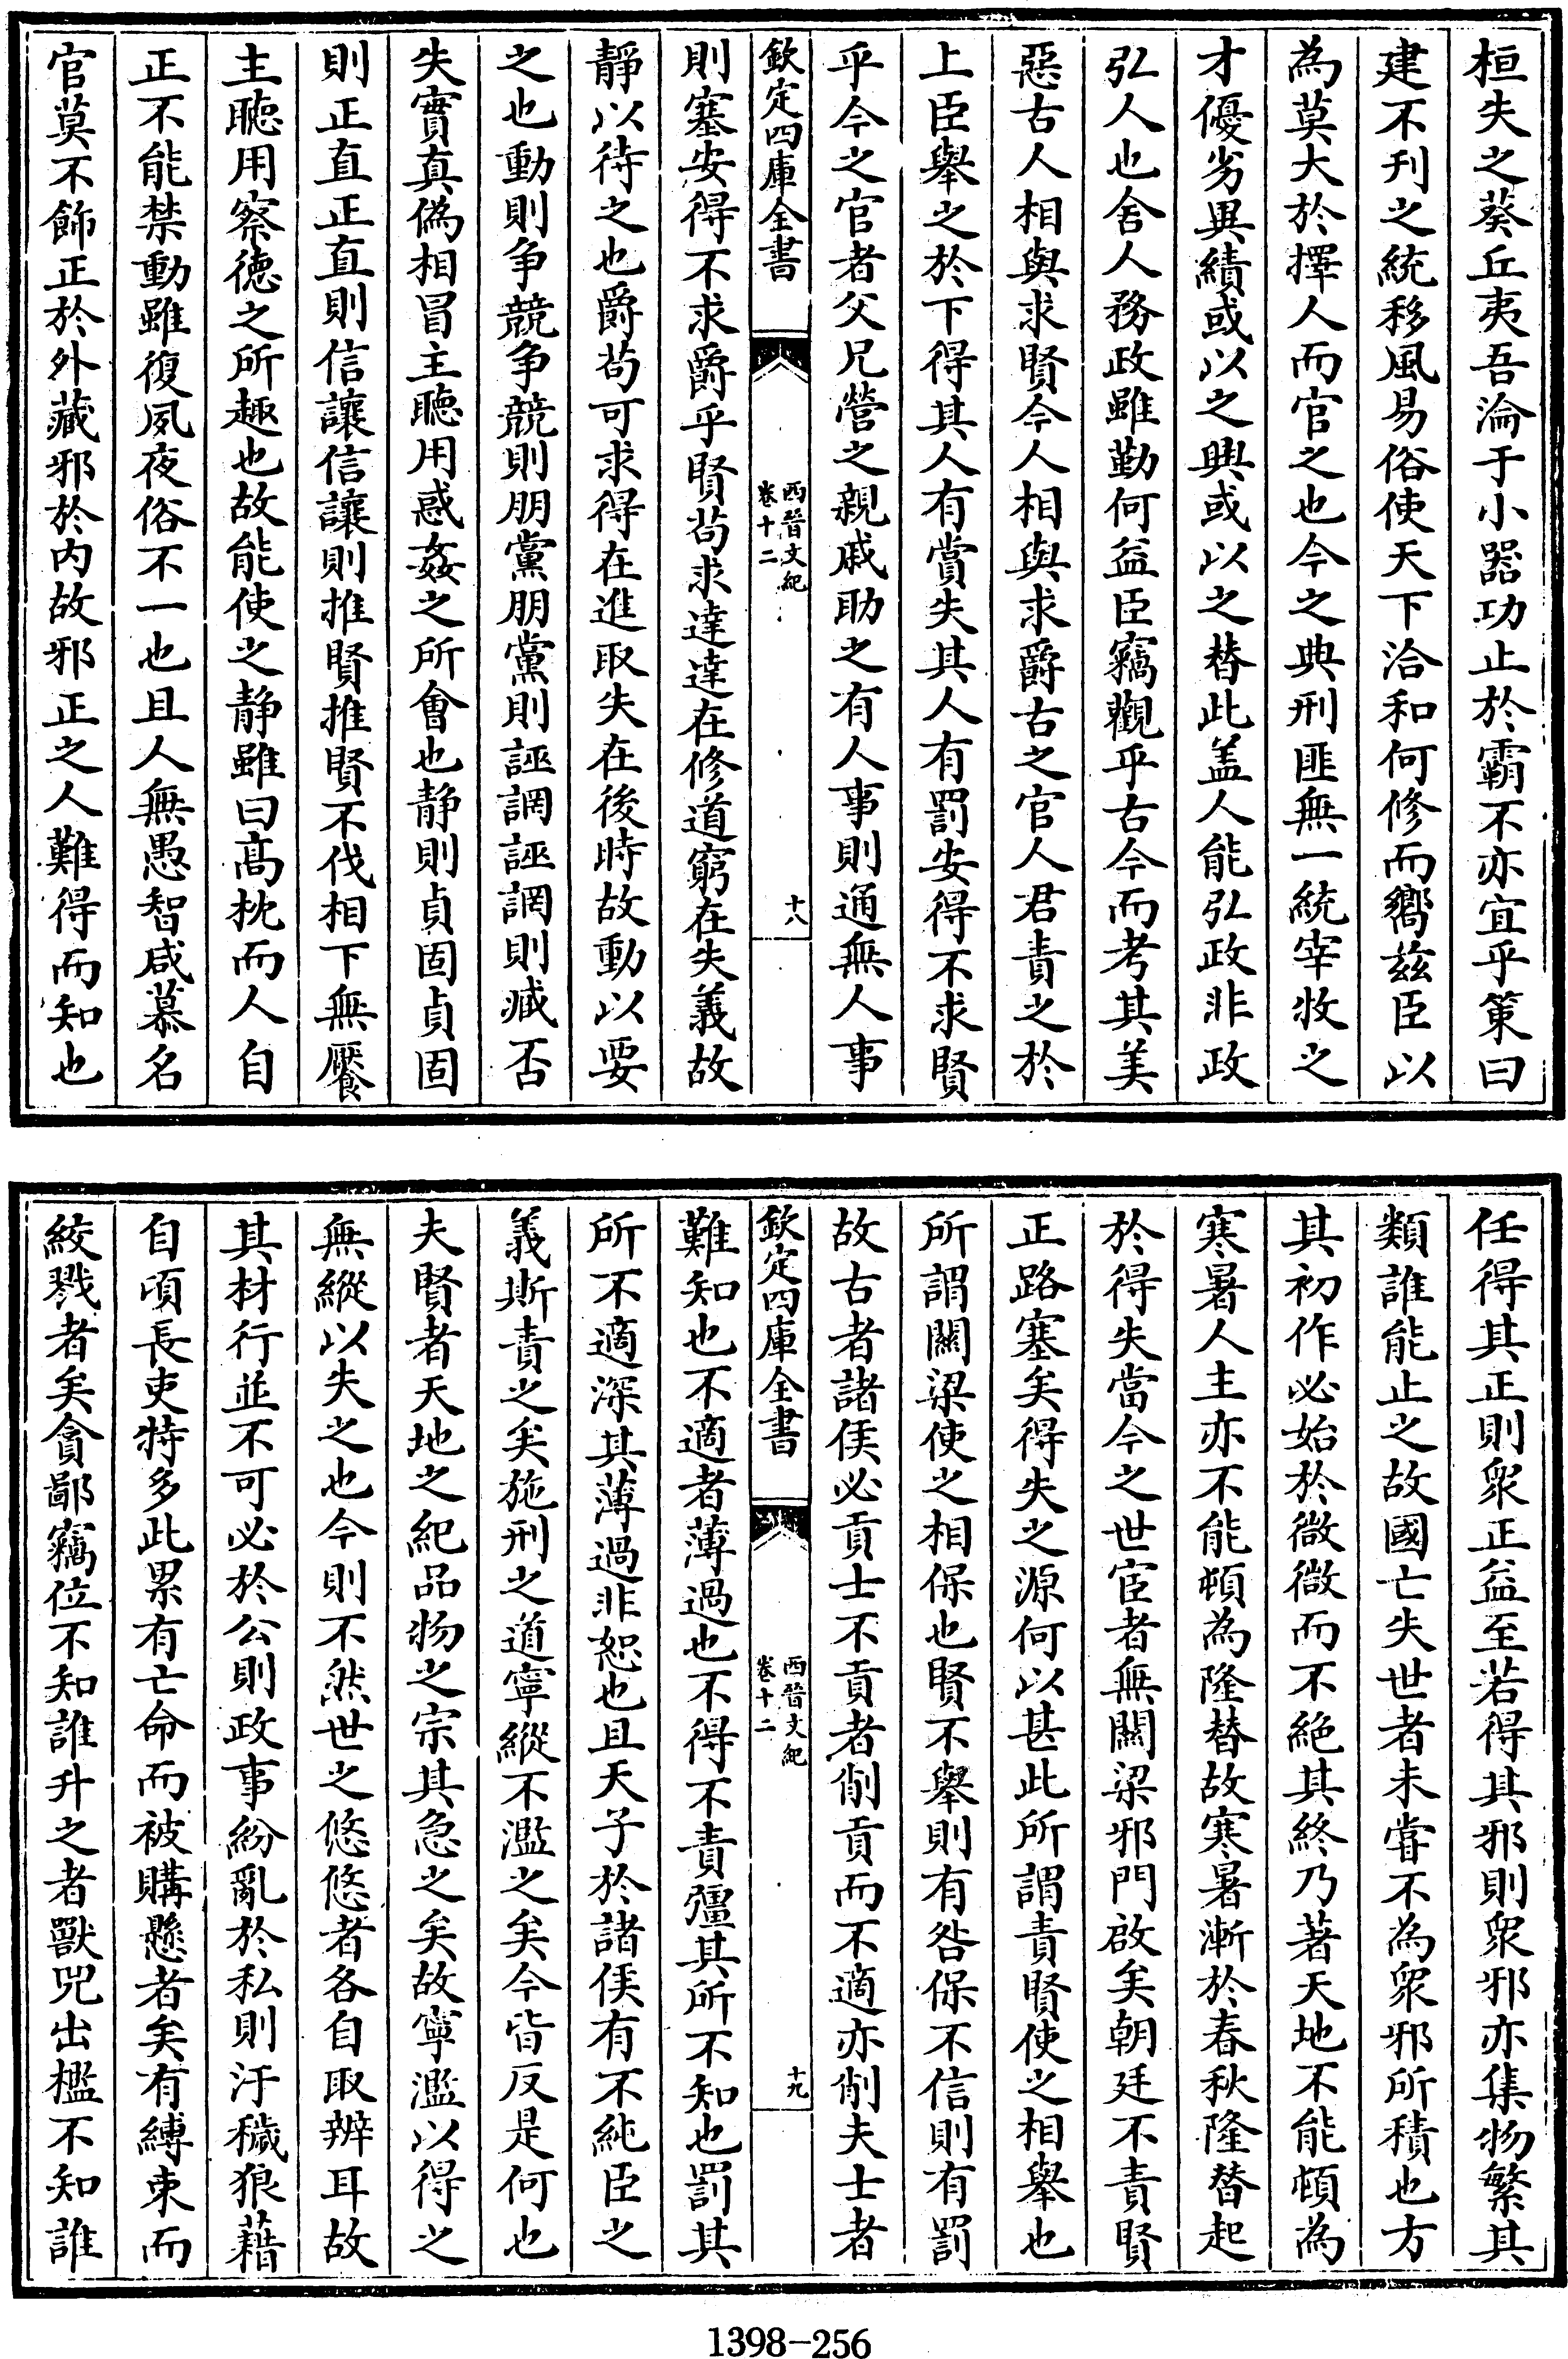 桓失之葵丘夷吾淪于小器功止於霸不亦宜乎策曰
建不刊之統移風易俗使天下洽和何修而嚮兹臣以
為莫大於擇人而官之也今之典刑匪無一統宰牧之
才優劣異績或以之興或以之替此盖人能弘政非政
弘人也舍人務政雖勤何益臣竊觀乎古今而考其美
惡古人相與求賢今人相與求爵古之官人君責之於
上臣舉之於下得其人有賞失其人有罰安得不求賢
乎今之官者父兄營之親戚助之有人事則通無人事
欽定四庫全書
西晉文紀
卷十二
十八
則塞安得不求爵乎賢苟求達達在修道窮在失義故
靜以待之也爵苟可求得在進取失在後時故動以要
之也動則争競争競則朋黨朋黨則誣誷誣誷則臧否
失實真偽相冒主聽用惑姦之所會也静則貞固貞固
則正直正直則信讓信讓則推賢推賢不伐相下無饜
主聽用察徳之所趣也故能使之静雖曰髙枕而人自
正不能禁動雖復夙夜俗不一也且人無愚智咸慕名
官莫不飾正於外藏邪於内故邪正之人難得而知也
任得其正則衆正益至若得其邪則衆邪亦集物繁其
類誰能止之故國亡失世者未甞不為衆邪所積也方
其初作必始於微微而不絶其終乃著天地不能頓為
寒暑人主亦不能頓為隆替故寒暑漸於春秋隆替起
於得失當今之世宦者無關梁邪門啟矣朝廷不責賢
正路塞矣得失之源何以甚此所謂責賢使之相舉也
所謂關梁使之相保也賢不舉則有咎保不信則有罰
故古者諸侯必貢士不貢者削貢而不適亦削夫士者
欽定四庫全書
西晉文紀
卷十二
十九
難知也不適者薄過也不得不責彊其所不知也罰其
所不適深其薄過非恕也且天子於諸侯有不純臣之
義斯責之矣施刑之道寧縱不濫之矣今皆反是何也
夫賢者天地之紀品物之宗其急之矣故寧濫以得之
無縱以失之也今則不然世之悠悠者各自取辨耳故
其材行並不可必於公則政事紛亂於私則汙穢狼藉
自頃長吏特多此累有亡命而被購懸者矣有縛束而
絞戮者矣貪鄙竊位不知誰升之者獸兕出檻不知誰
1398-256